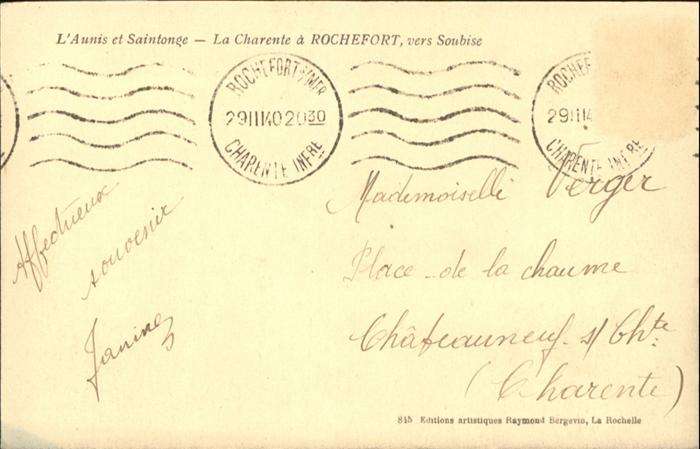 L'Aunis et Saintonge — La Charente à ROCHEFORT, vers Soubise
ROCHEFORT S/MER
29II1402030
CHARENTE INFRE
ROCHEF
29II14
CHARENTE INFRE
Affectueux
souvenir
Janine
Mademoiselle Verger
Place de la chaume
Châteauneuf s/ Chte
(Charente)
845 Editions artistiques Raymond Bergevin, La Rochelle